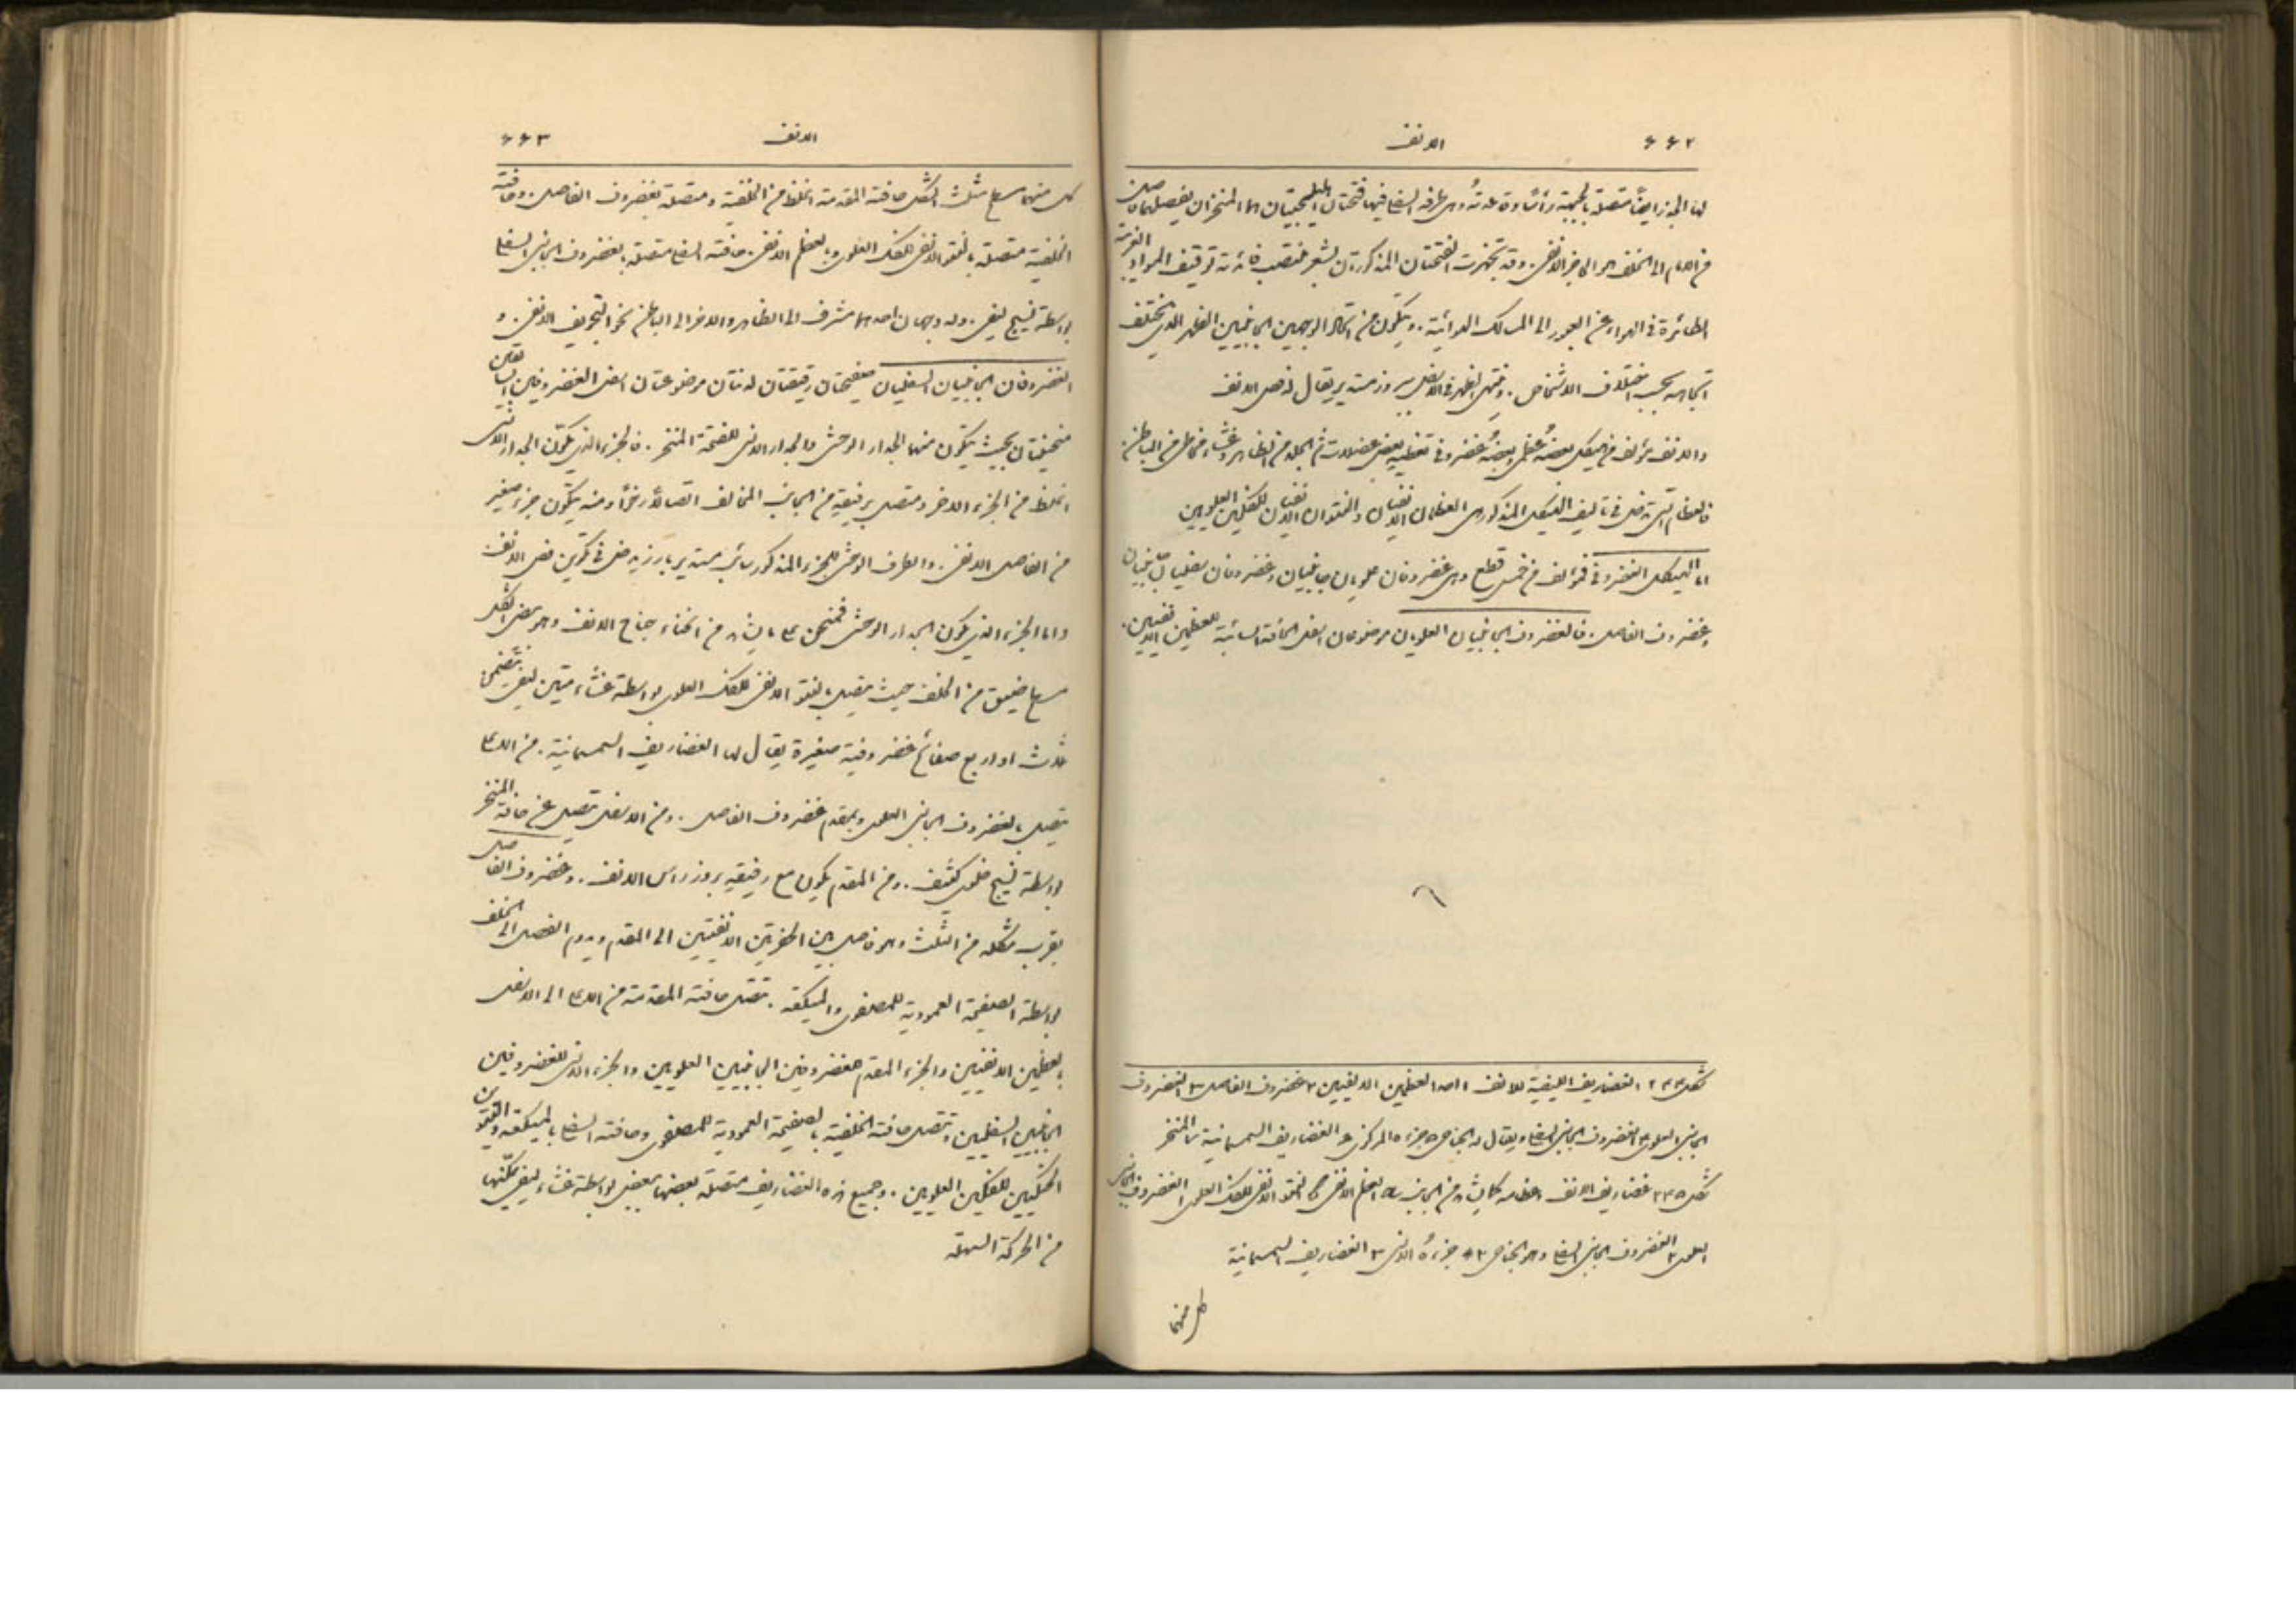 ٦٦٢ الانف
لها الجزر ايضًا متصلة بالجبهة رأسًا وقاعدتهُ وهي طرفه السفلي فيها فتحتان اهليلجيتان هما المنخران يفصلهما فاصل
من الامام الى الخلف هو الحاجز الانفي. وقد تجهزت الفتحتان المذكورتان بشعر منتصب فائدته توقيف المواد الغريبة
الطائرة في الهواء عن العبور الى المسالك الهوائية. ويتكون من اتحاد الوجهين الجانبيين الظهر الذي يختلف
اتجاهه بحسب اختلاف الاشخاص. وينتهي الظهر في الاسفل ببروز مستدير يقال له فص الانف
والانف يتألف من هيكل بعضهُ عظمي وبعضهُ غضروفي تغطيه بعض عضلات ثم الجلد من الظاهر وغشاء مخاطي من الباطن.
فالعظام التي تدخل في تأليف الهيكل المذكور هي العظمان الانفيان والنتوان الانفيان للفكين العلويين
اما الهيكل الغضروفي فمؤلف من خمس قطع وهي غضروفان علويان جانبيان وغضروفان سفليان جانبيان
وغضروف الفاصل. فالغضروفان الجانبيان العلويان موضوعان اسفل الحافة السائبة للعظمين الانفيين.
شكل ٢٤٤ الغضاريف الليفية للانف ١ احد العظمين الانفيين ٢ غضروف الفاصل ٣ الغضروف
الجانبي العلوي ٤ الغضروف الجانبي السفلي ويقال له الجناحي ٥ جزءه المركزي ٦ الغضاريف السمسمانية ٧ المنخر
شكل ٢٤٥ غضاريف الانف وعظامه كما يشاهد من الجانب العظم الانفي النتو الانفي للفك العلوي ١ الغضروف الجانبي
العلوي ٢ الغضروف الجانبي السفلي وهو الجناحي ٢* جزءهُ الانسي ٣ الغضاريف السمسمانية
كل منهما
الانف ٦٦٣
كل منهما مسطح مثلث الشكل حافته المقدمة اغلظ من الخلفية ومتصلة بغضروف الفاصل. وحافته
الخلفية متصلة بالنتو الانفي للفك العلوي وبالعظم الانفي. حافته السفلى متصلة بالغضروف الجانبي السفلي
بواسطة نسيج ليفي. وله وجهان احدهما مشرف الى الظاهر والاخر الى الباطن نحو التجويف الانفي. و
الغضروفان الجانبيان السفليان صفيحتان رقيقتان لدنتان موضوعتان اسفل الغضروفين السابقين
منحنيتان بحيث يتكون منهما الجدار الوحشي والجدار الانسي لفتحة المنخر. فالجزء الذي يكوّن الجدار الانسي
اغلظ من الجزء الاخر ومتصل برفيقه من الجانب المخالف اتصالاً رخوًا ومنه يتكون جزء صغير
من الفاصل الانفي. والطرف الوحشي للجزء المذكور سائب مستدير بارز يدخل في تكوين فص الانف
واما الجزء الذي يكون الجدار الوحشي فمنحنٍ على ما يشاهد من انحناء جناح الانف وهو بيضي الشكل
مسطح ضيق من الخلف حيث يتصل بالنتو الانفي للفك العلوي بواسطة غشاء متين ليفي يتضمن
ثلاث او اربع صفائح غضروفية صغيرة يقال لها الغضاريف السمسمانية. من الاعلى
يتصل بالغضروف الجانبي العلوي وبمقدم غضروف الفاصل. ومن الاسفل تفصل عن حافة المنخر
بواسطة نسيج خلوي كثيف. ومن المقدم يكون مع رفيقه بروز راس الانف. وغضروف الفاصل
يقرب شكله من المثلث وهو فاصل بين الحفرتين الانفيتين الى المقدم ويدوم الفصل الى الخلف
بواسطة الصفيحة العمودية للمصفوي والميكعة. تتصل حافته المقدمة من الاعلى الى الاسفل
بالعظمين الانفيين والجزء المقدم للغضروفين الجانبيين العلويين والجزء الانسي للغضروفين
الجانبيين السفليين وتتصل حافته الخلفية بالصفيحة العمودية للمصفوي وحافته السفلى بالميكعة والنتوين
الحنكيين للفكين العلويين. وجميع هذه الغضاريف متصلة بعضها ببعض بواسطة غشاء ليفي يمكّنها
من الحركة السهلة